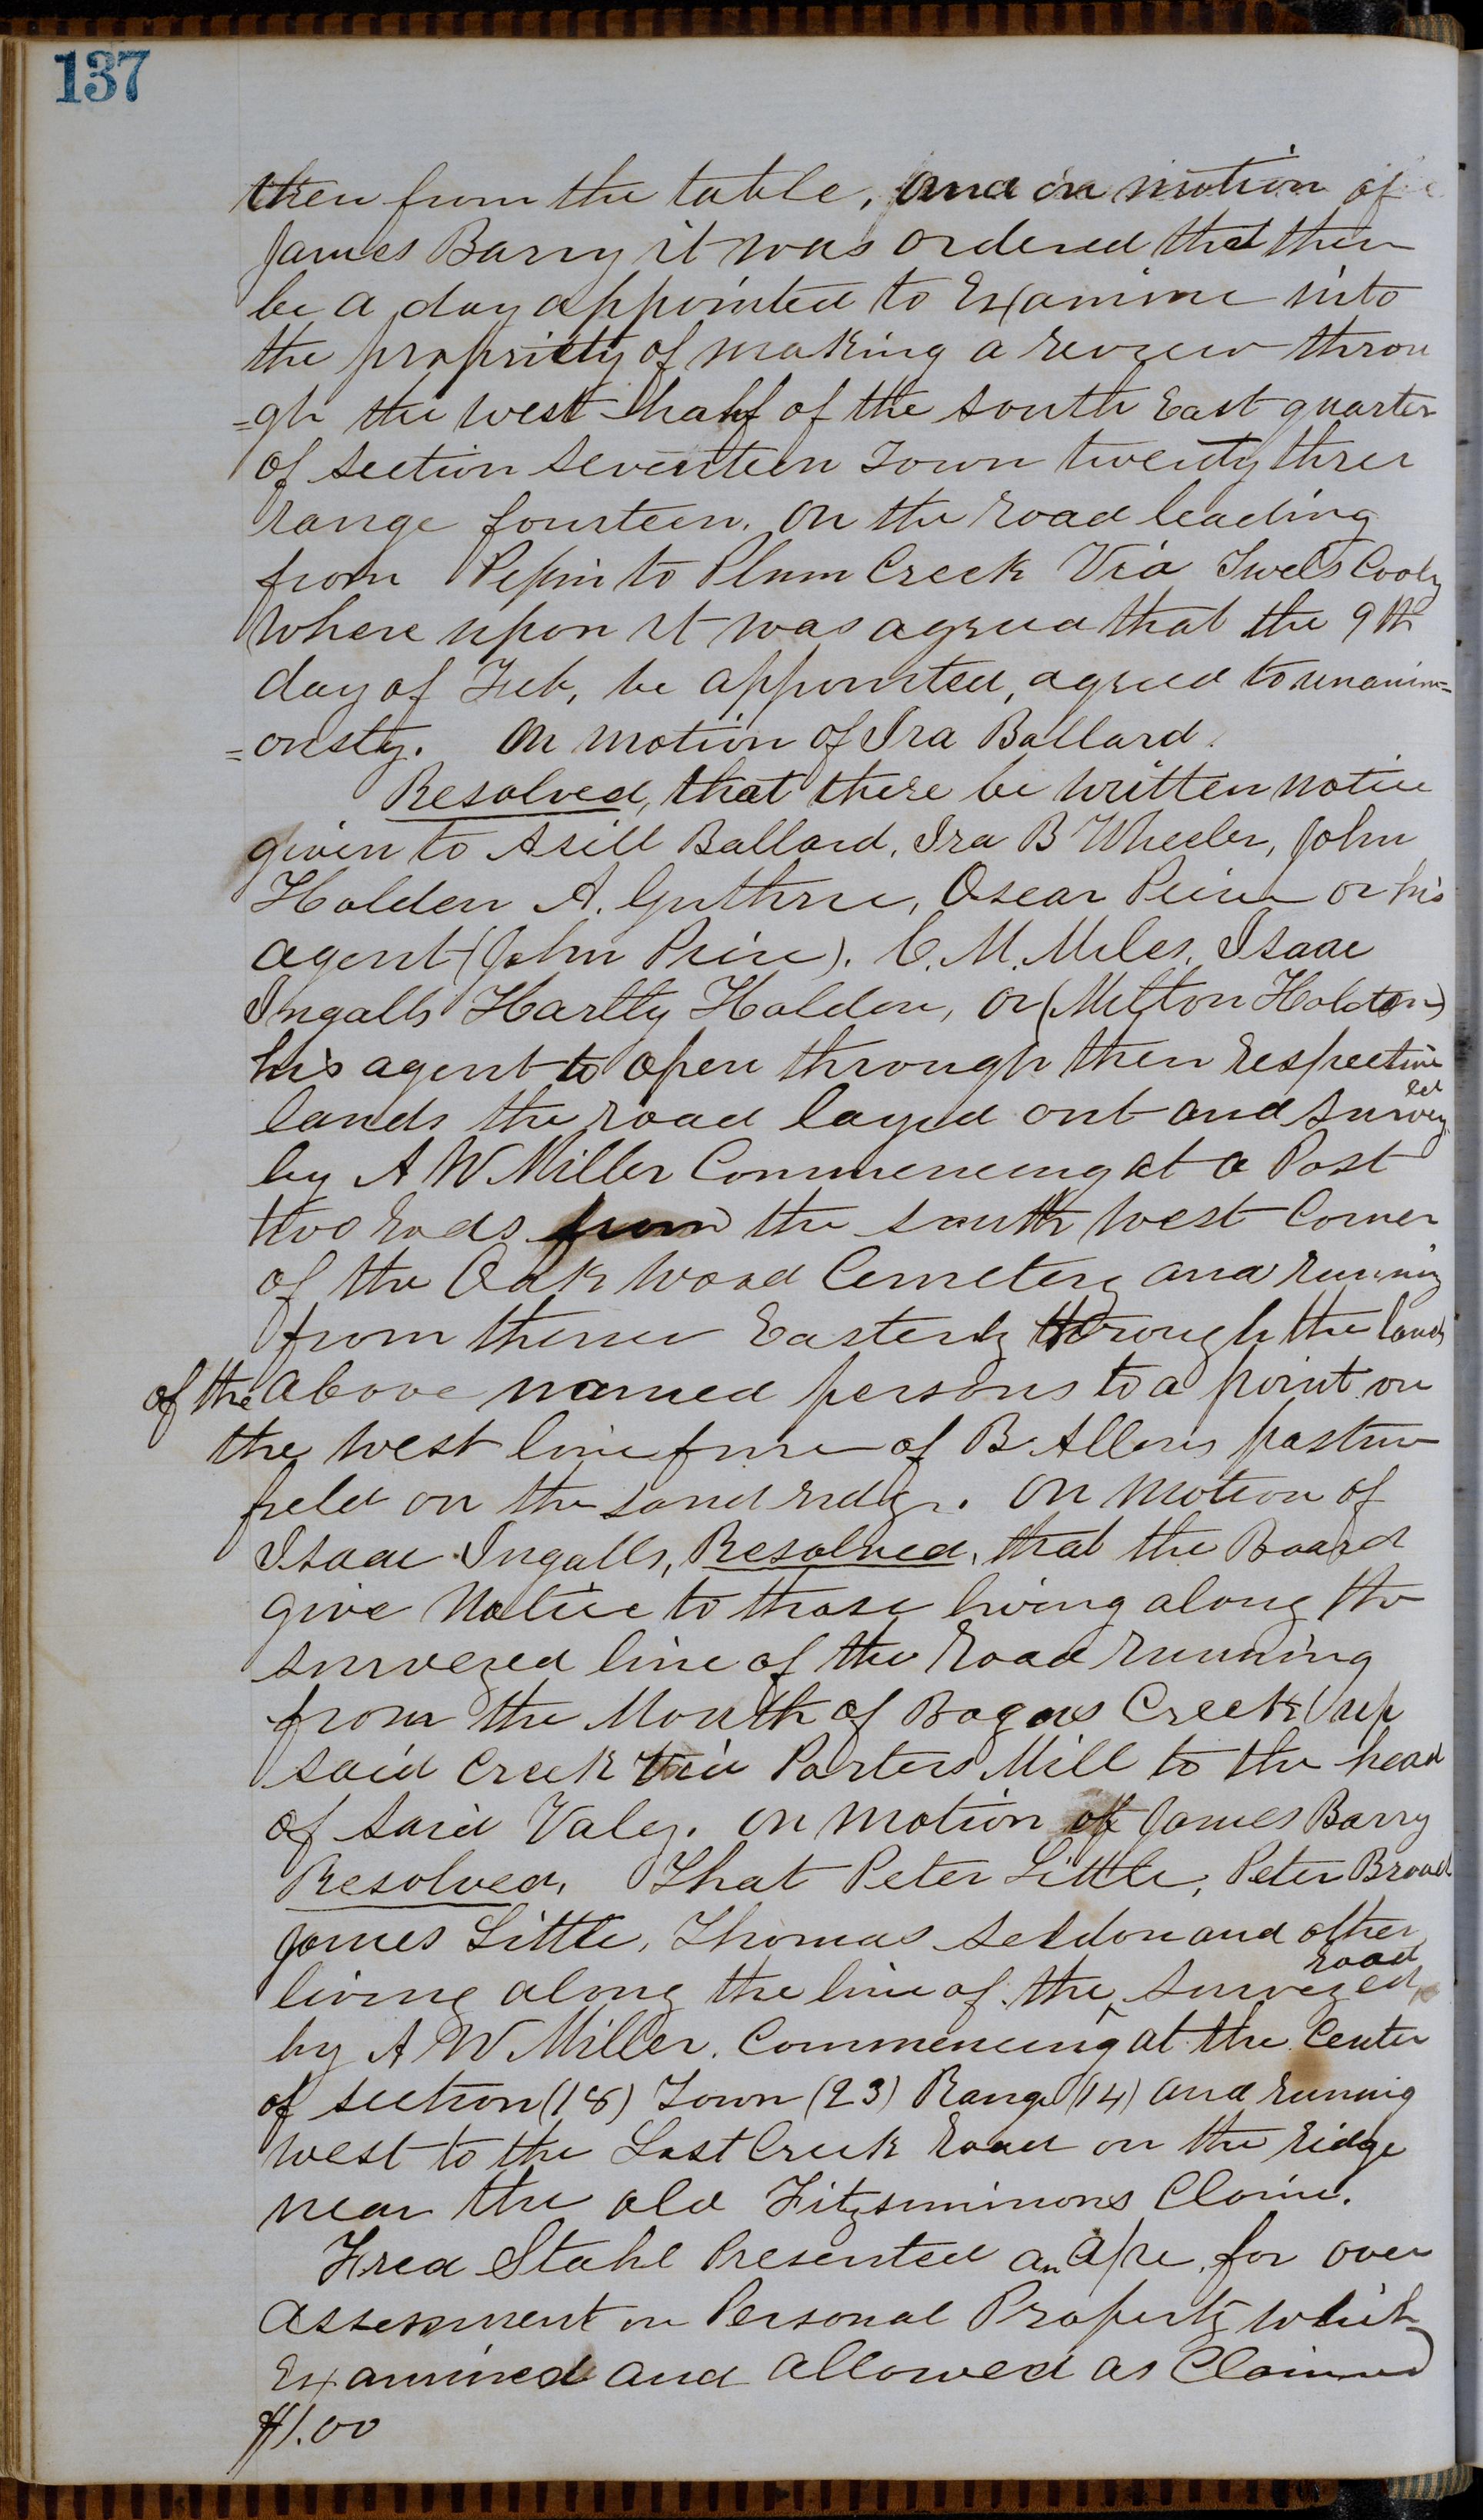 137
then from the table, and on motion of
James Barry it was ordered that ther
be a day appointed to Examine into
the propriety of making a review throu
=gh the west half of the south East quarter
of section seventeen Town twenty three
range fourteen. On the road leading
from Pepin to Plum Creek Via Cooly
Where upon it was agreed that the 9th
day of Feb, be appointed, agreed to unanim=
=ously. On motion of Ira Ballard.
Resolved, that there be written notice
given to Asill Ballard, Ira B Wheeler, John
Holden A. Guthrie, Oscar Peirce or his
agent (John Peirce). C. M. Miles, Isaac
Ingalls Hartly Holden, or (Milton Holden)
his agent to open through their respective
lands the road layed out and surveyed
by A W Miller Commencing at a Post
two rods from the south west Corner
of the Oak wood Cemetery and running
from thence Easterly through the lands
of the above named persons to a point on
the west line fence of B Allens pasture
field on the sand ridge. On motion of
Isaac Ingalls, Resolved, that the Board
give Notice to those living along the
surveyed line of the Road running
from the Mouth of Bogus Creek up
said Creek via Porters Mill to the head
of said Valey. On motion of James Barry
Resolved, That Peter Little, Peter Broad
James Little, Thomas Seldon and other
living along the line of the road surveyed
by A W Miller. Commencing at the Center
of section (18) Town (23) Range (14) and runing
west to the Lost Creek Road on the ridge
near the old Fitzsimmons Claim.
Fred Stahl Presented an a/c for over
assessment on Personal Property which
Examined and allowed as Claimed
$1.00